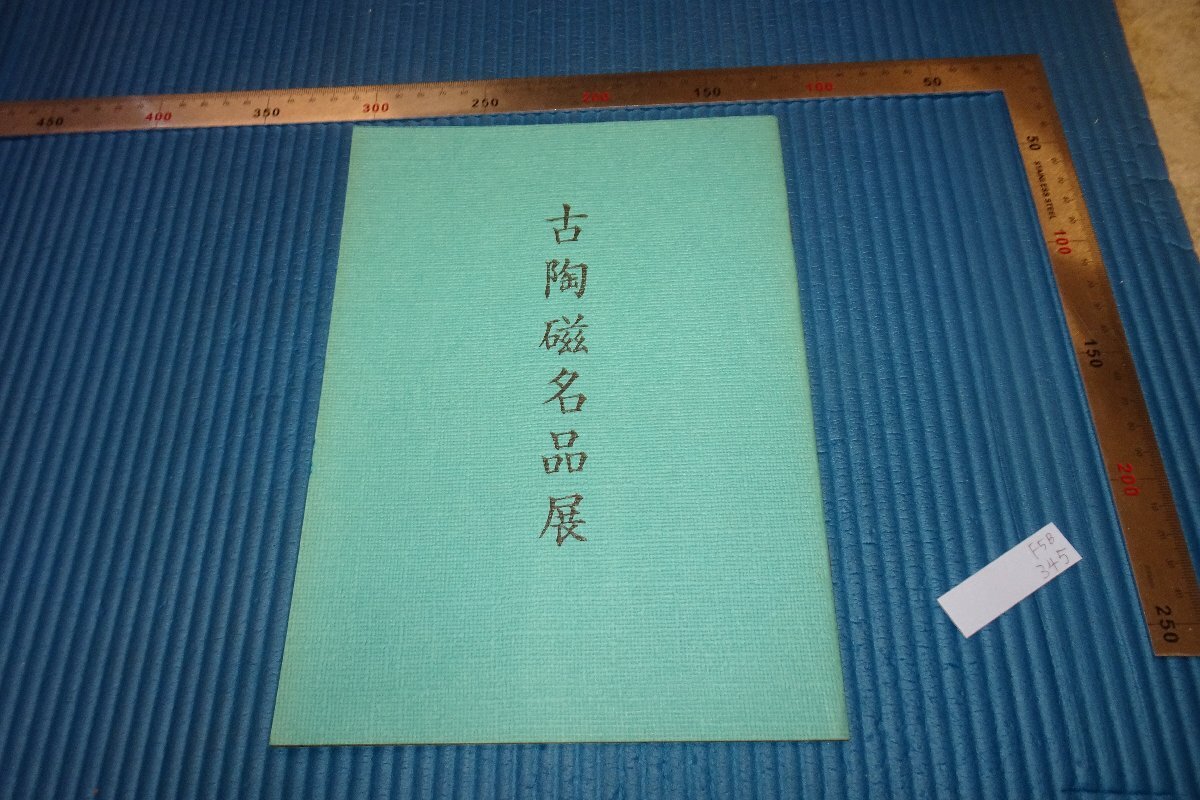 450 400 350 300 250 200 150 100 50
50
STAINLESS STEEL
100
150
200
250
古陶磁名品展
F5B
345